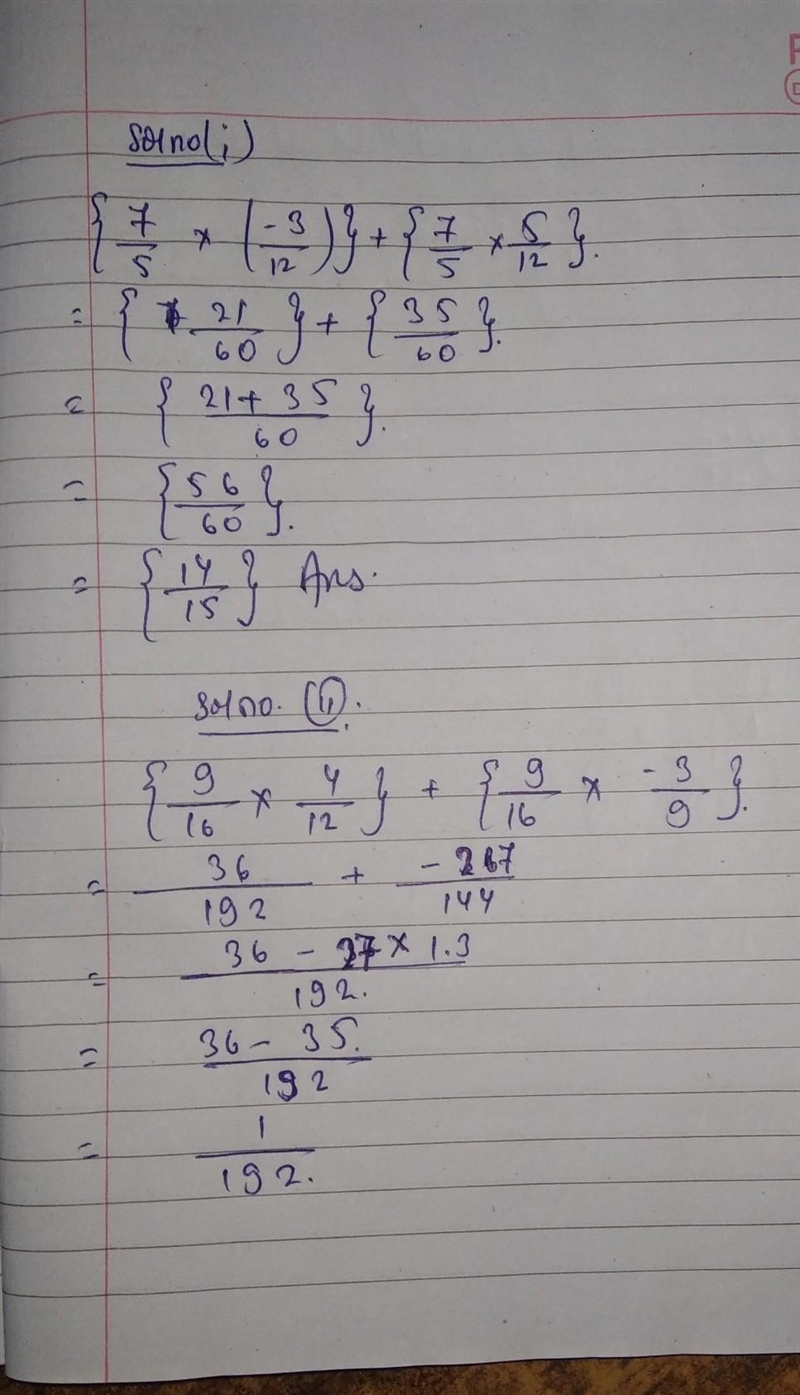 Soln o (i)
{7/5 × (-3/12)} + {7/5 × 5/12}.
= {21/60} + {35/60}.
= {21+35/60}.
= {56/60}.
= {14/15} Ans.
Soln o. (ii).
{9/16 × 4/12} + {9/16 × -3/9}.
= 36/192 + -27/144
= 36 - 27 × 1.3/192.
= 36 - 35./192
= 1/192.